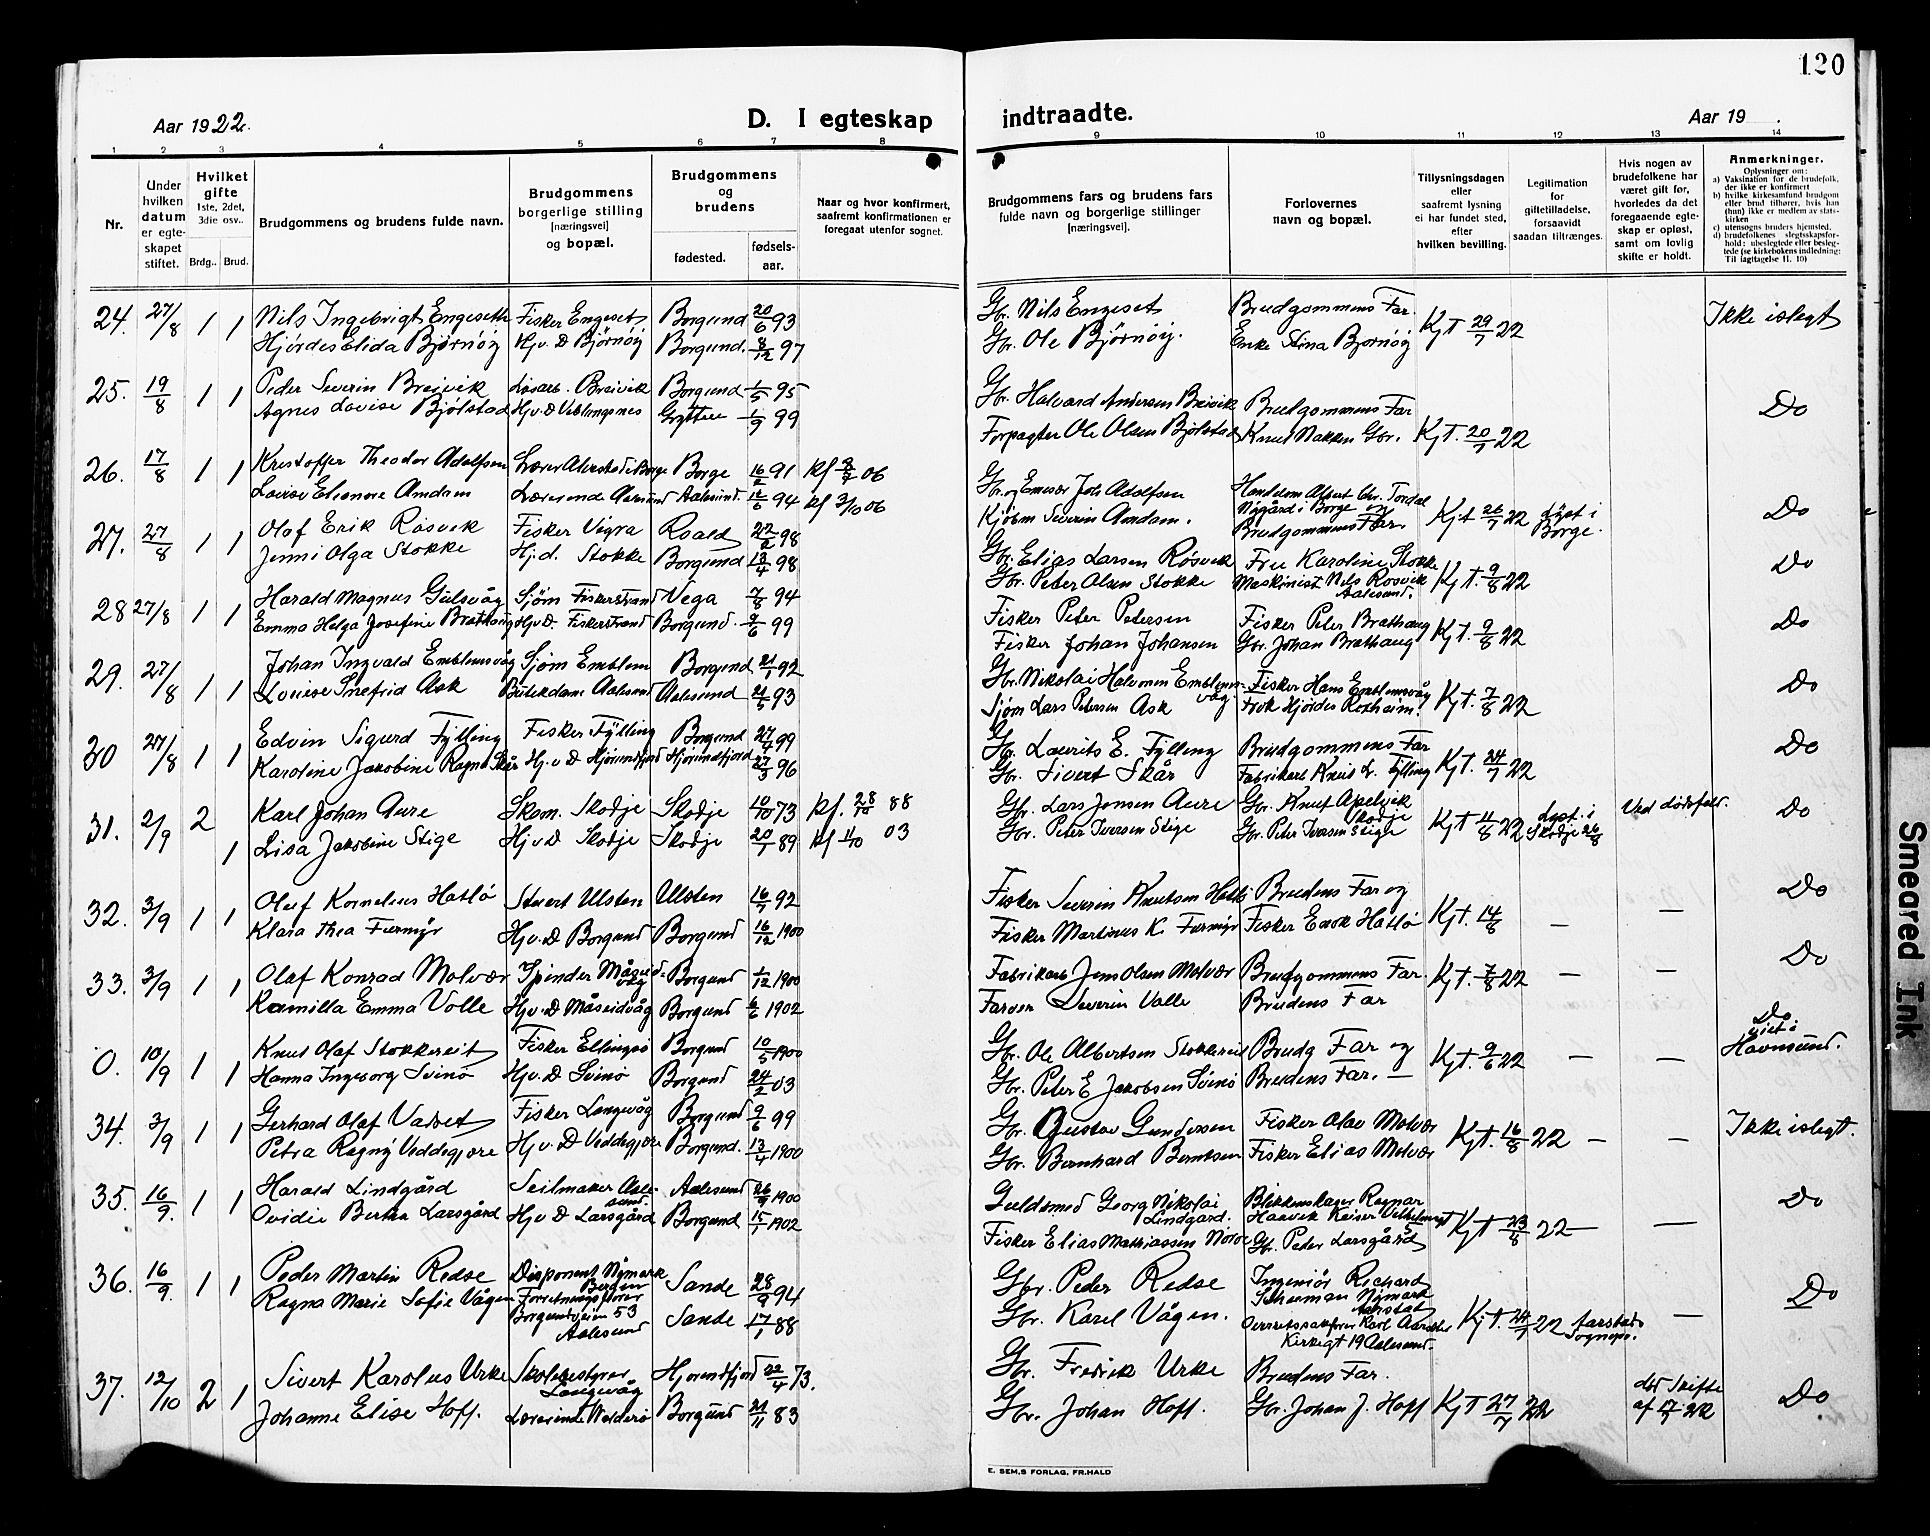 120
Aar 1922.
D. I egteskap
indtraadte.
Aar 19 .
1 2 3 4 5 6 7 8 9 10 11 12 13 14
Nr.
Under hvilken datum er egteskapet stiftet.
Hvilket gifte 1ste, 2det, 3die osv..
Brdg.. Brud.
Brudgommens og brudens fulde navn.
Brudgommens borgerlige stilling [næringsvei] og bopæl.
Brudgommens og brudens
fødested. fødsels-aar.
Naar og hvor konfirmert, saafremt konfirmationen er foregaat utenfor sognet.
Brudgommens fars og brudens fars fulde navn og borgerlige stillinger [næringsvei].
Forlovernes navn og bopæl.
Tillysningsdagen eller saafremt lysning ei har fundet sted, efter hvilken bevilling.
Legitimation for giftetilladelse, forsaavidt saadan tiltrænges.
Hvis nogen av brudefolkene har været gift før, hvorledes da det foregaaende egteskap er opløst, samt om lovlig skifte er holdt.
Anmerkninger.
Oplysninger om:
a) Vaksination for de brudefolk, der ikke er konfirmert
b) hvilke kirkesamfund brudgom eller brud tilhører, hvis han (hun) ikke er medlem av statskirken
c) utensogns bruders hjemsted.
d) brudefolkenes slegtsskapsforhold: ubeslegtede eller beslegtede (se kirkebokens indledning: Til iagttagelse 11. 10)
24. 27/8 1 1 Nils Ingebrigt Engeseth Fisker Engeset Borgund 20/6 93 Gbr. Nils Engeset Brudgommens Far. Kjt 29/7 22 Ikke islegt
Hjördes Elida Bjørnøy Hj.v.D Bjørnøy Borgund. 8/12 97 Gbr. Ole Bjørnøy. Enke Stina Bjørnøy
25. 19/8 1 1 Peder Severin Breivik Løsarb. Breivik Borgund 1/5 95 Gbr. Halvard Andersen Breivik Brudgommens Far Kjt. 20/7 22 Do
Agnes Lovise Bjølstad Hj.v.D Veblungsnes Grytten 1/9 99 Forpagter Ole Olsen Bjølstad Knut Nakken Gbr.
26. 17/8 1 1 Kristoffer Theodor Adolfsen Lærer Borge 16/2 91 Kf 06 Gbr. og Joh Adolfsen Kjt 26/7 22 Lyst i Borge. Do
Lovise Eleonore Amdam Lærerinde Aalesund Aalesund. 12/6 94 kf 3/10 06 Kjøbm Severin Amdam. Nygård i Borge og Brudgommens Far.
27. 27/8 1 1 Olaf Erik Røsvik Fisker Vigra Roald 22/2 98 Gbr. Elias Larsen Røsvik Fru Karoline Stokke Kjt. 9/8 22 Do
Jenni Olga Stokke Hj.d. Stokke Borgund 13/4 98 Gbr. Peter Olsen Stokke Maskinist Nils Rosvik Aalesund.
28 27/8 1 1 Harald Magnus Gulsvåg Sjøm Fiskerstrand Vega 7/8 94 Fisker Peter Petersen Fisker Peter Brathaug Kjt. 9/8 22 Do
Emma Helga Josefine Brathaug Hj.v.D. Fiskerstrand Borgund. 9/6 99 Fisker Johan Johansen Gbr. Johan Brathaug
29. 27/8 1 1 Johan Ingvald Emblemsvåg Sjøm Emblem Borgund 21/1 92 Gbr. Nikolai Halvorsen Emblemsvåg Fisker Hans Emblemsvåg Kjt. 7/8 22 Do
Lovise Snefrid Ask Butikdame Aalesund Aalesund 21/5 93 Sjøm Lars Petersen Ask Frøk Hjördes Roxheim.
30 27/8 1 1 Edvin Sigurd Fylling Fisker Fylling Borgund 27/4 99 Gbr. Laurits E. Fylling Brudgommens Far Kjt. 24/7 22 Do
Karoline Jakobine Ragna Skår Hj.v.D Hjörundfjord Hjörundfjord 27/3 96 Gbr. Sivert Skår Fabrikarb Knut L. Fylling
31. 2/9 2 1 Karl Johan Aure Skom. Skodje Skodje 10/10 73 Kf. 28/10 88 Gbr. Lars Jonsen Aure Gbr. Knut Apelvik Skodje Kjt 11/8 22 Lyst i Skodje 26/8 Ved dødsfald. Do
Lisa Jakobine Stige Hj.v.D Skodje Skodje 20/1 89 Kf 1/10 03 Gbr. Peter Iversen Stige Gbr. Peter Iversen Stige
32. 3/9 1 1 Oluf Kornelius Hatlø Stuert Ulsten Ulsten 16/7 92 Fisker Severin Knutsen Hatlø Brudens Far og Kjt. 14/8 — — Do
Klara Thea Furmyr Hj.v.D Borgund Borgund 16/12 1900 Fisker Martinus K. Furmyr Fisker Enok Hatlø
33. 3/9 1 1 Olaf Konrad Molvær Spinder Måseidvåg Borgund 1/12 1900 Fabrikarb Jens Olsen Molvær Brudgommens Far. Kjt. 7/8 22 — — Do
Kamilla Emma Valle Hj.v.D Måseidvåg Borgund 6/6 1902 Severin Valle Brudens Far
0. 10/9 1 1 Knut Olaf Stokkereit Fisker Ellingsø Borgund 10/5 1900 Gbr. Ole Albertsen Stokkereit Brudg Far og Kjt. 9/6 22 — — Do viet i Havnsund.
Hanna Ingeborg Svinø Hj.v.D Svinø Borgund 24/2 03 Gbr. Peter E Jakobsen Svinø Brudens Far. —
34. 3/9 1 1 Gerhard Olaf Vadset Fisker Langevåg Borgund 9/6 99 Gbr. Gustav Gundersen Fisker Olav Molvær Kjt. 16/8 22 — — Ikke islegt.
Petra Ragny Veddegjøre Hj.v.D Veddegjøre Borgund. 13/4 1900 Gbr. Bernhard Berntsen Fisker Elias Molvær
35. 16/9. 1 1 Harald Lindgård Seilmaker Aalesund. Aalesund 26/9 1900 Guldsmed Georg Nikolai Lindgård. Blikkenslager Ragnar Haavik Keiser Vilhelmsgt Kjt 23/8 22 — — Do
Ovidie Berta Larsgård Hj.v.D Larsgård Borgund 15/1 1902 Fisker Elias Mathiassen Gbr. Peder Larsgård
36. 16/9. 1 1 Peder Martin Redse Disponent Nymark Bergen Sande 28/9 94 Gbr. Peder Redse Ingeniør Richard Nymark Aarstad Kjt. 24/7 22 Aarstad Sognepr. — Do
Ragna Marie Sofie Vågen Forretningsfører Borgundveien 53 Aalesund Sande 17/1 88 Gbr. Karl Vågen. Overretssakfører Karl Kirkegt 19 Aalesund.
37. 12/10 2 1 Sivert Karolus Urke Skolebestyrer Langevåg Hjørundfjord 22/4 73. Gbr. Fredrik Urke Brudens Far. Kjt 27/7 22 Skifte af 17/7 22 Do
Johanne Elise Hoff. Lærerinde Valderø Borgund 21/11 83 Gbr. Johan Hoff. Gbr. Johan J. Hoff
E. SEM.S FORLAG, FR.HALD
Smeared Ink